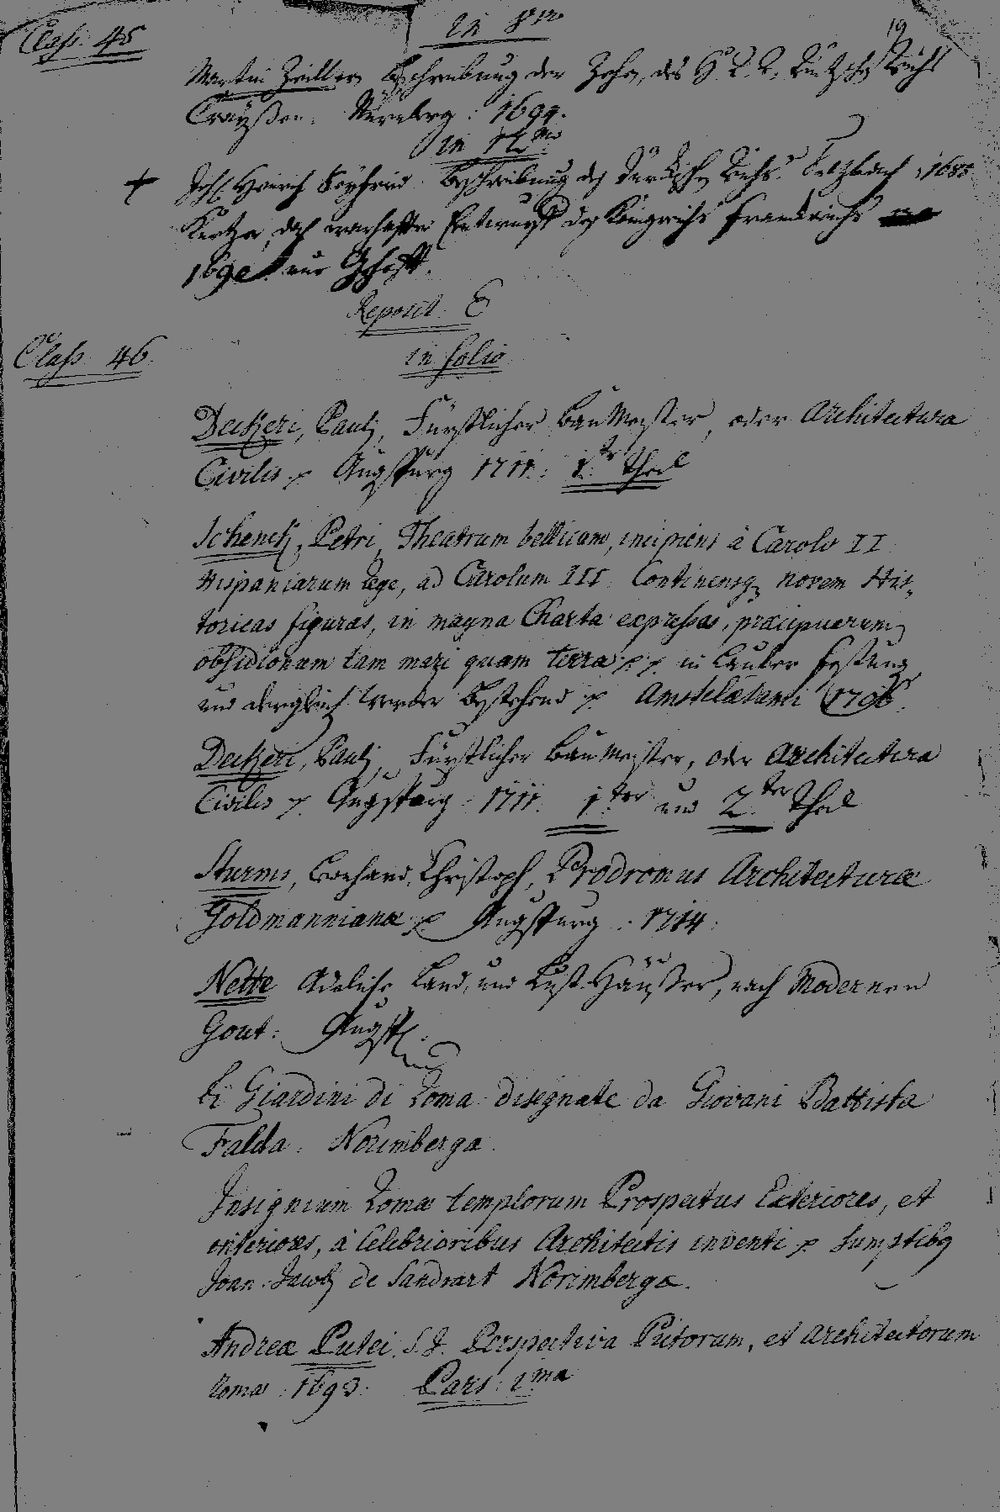 19
Class. 45
in 8vo
Martin Zeillers Beschreibung der Zehen, des H. R. R. Teutschen Reichs
Craÿßen. Nürnberg: 1694.
in 12mo
+ Joh. Henrich Seÿfried Beschreibung des Türckischen Reichs. Sultzbach, 1685
Kurtzer, doch warhaffter Entwurff des Königreichs Franckreichs
1690.
Reposit. E
Class. 46.
in folio
Deckeri, Paulj, Fürstlicher Bau Meister, oder Architectura
Civilis p Augspurg 1711. 1ter Theil
Schenckj, Petri, Theatrum bellicum, incipiens à Carolo II
Hispaniarum Rege, ad Carolum III. Continensq novem His-
toricas figuras, in magna Charta expressas, præcipuarum
obsidionum tam mari quam terra p p in lauter Festung
und dergleichen Wercker bestehend p Amstelædami 1706.
Deckeri, Paulj, Fürstlicher Bau Meister, oder Architectura
Civilis p. Augspurg. 1711. 1.ter und 2.ter Theil
Sturms, Leonhard, Christoph, Prodromus Architecturæ
Goldmannianæ p Augspurg. 1714.
Nette Adeliche Land, und Lust-Häußer, nach Modernen
Gout: Augsp.
Li Giardini di Roma disegnate da Giovani Battista
Falda. Norimberga.
Insignium Romæ templorum Prospectus Exteriores, et
interiores, à Celebrioribus Architectis inventi p Sumptibq
Joan. Jacobj de Sandrart Norimbergæ.
Andreæ Putei. S. J. Perspectiva Pictorum, et Architectorum
Romæ 1693. Pars. 1.ma